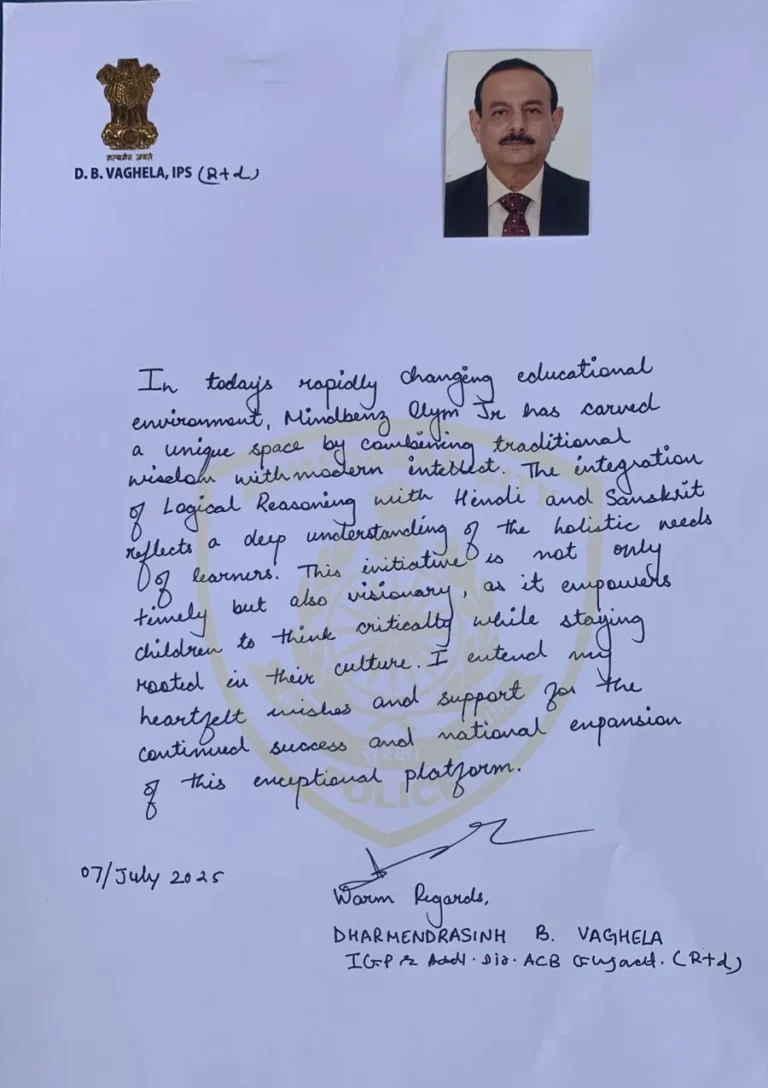 सत्यमेव जयते
D. B. VAGHELA, IPS (Rtd)
In today's rapidly changing educational
environment, Mindbenz Olym Jr has carved
a unique space by combining traditional
wisdom with modern intellect. The integration
of Logical Reasoning with Hindi and Sanskrit
reflects a deep understanding of the holistic needs
of learners. This initiative is not only
timely but also visionary, as it empowers
children to think critically while staying
rooted in their culture. I extend my
heartfelt wishes and support for the
continued success and national expansion
of this exceptional platform.
POLICE
07/July 2025
Warm Regards,
DHARMENDRASINH B. VAGHELA
IGP & Addl. Dir. ACB Gujarat. (Rtd)